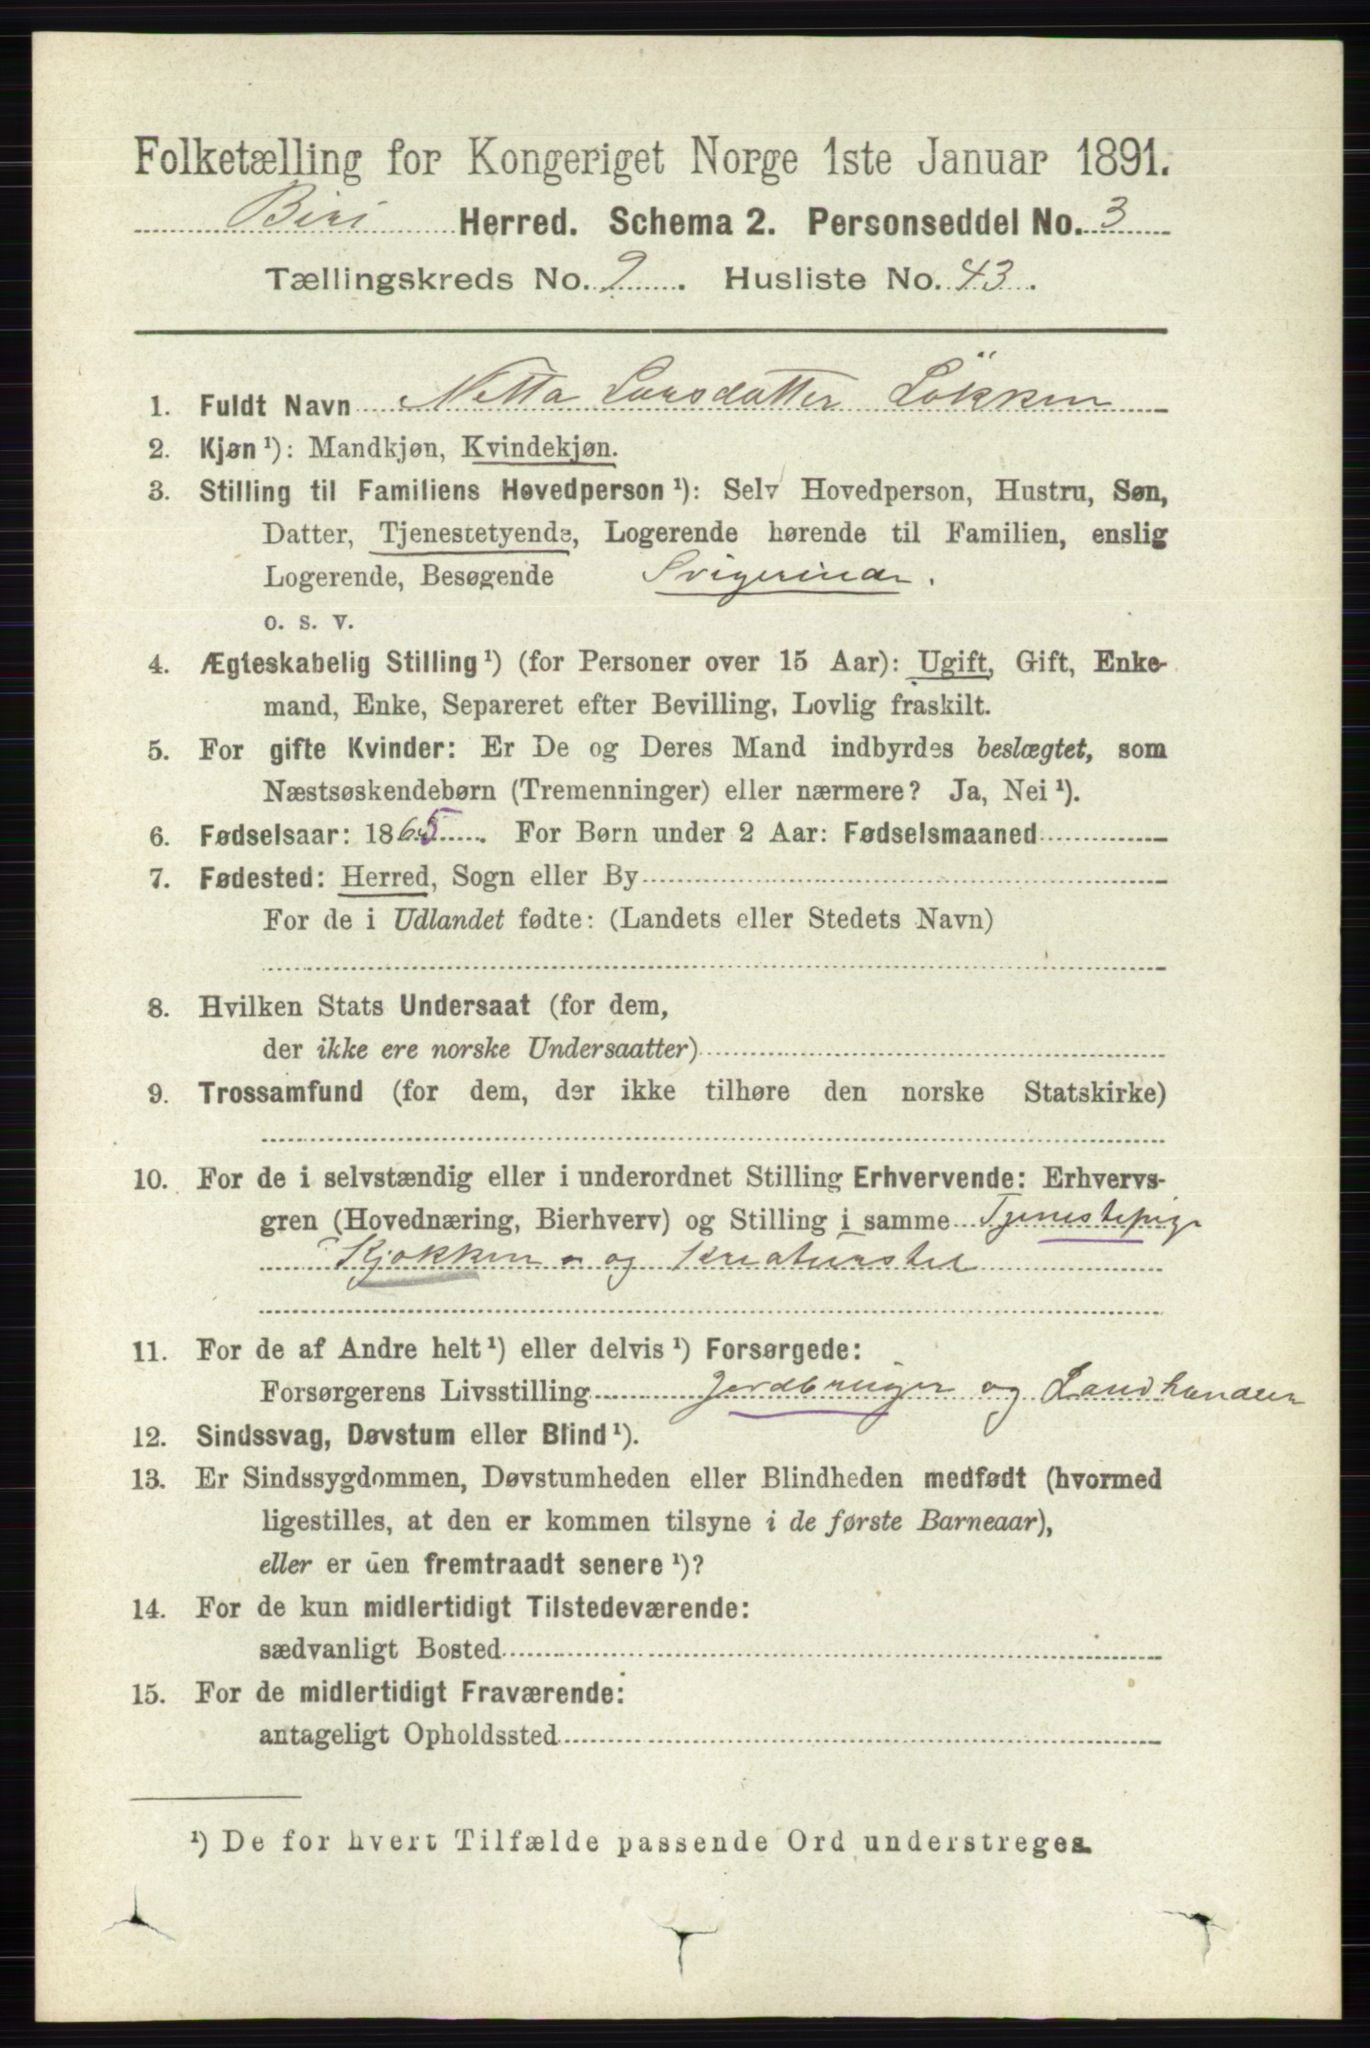 Folketælling for Kongeriget Norge 1ste Januar 1891.
Biri Herred. Schema 2. Personseddel No. 3
Tællingskreds No. 9. Husliste No. 43.
1. Fuldt Navn Netta Larsdatter Løkken
2. Kjøn ¹): Mandkjøn, Kvindekjøn.
3. Stilling til Familiens Hovedperson ¹): Selv Hovedperson, Hustru, Søn,
Datter, Tjenestetyende, Logerende hørende til Familien, enslig
Logerende, Besøgende Svigerinde.
o. s. v.
4. Ægteskabelig Stilling ¹) (for Personer over 15 Aar): Ugift, Gift, Enke-
mand, Enke, Separeret efter Bevilling, Lovlig fraskilt.
5. For gifte Kvinder: Er De og Deres Mand indbyrdes beslægtet, som
Næstsøskendebørn (Tremenninger) eller nærmere? Ja, Nei ¹).
6. Fødselsaar: 1865. For Børn under 2 Aar: Fødselsmaaned
7. Fødested: Herred, Sogn eller By
For de i Udlandet fødte: (Landets eller Stedets Navn)
8. Hvilken Stats Undersaat (for dem,
der ikke ere norske Undersaatter)
9. Trossamfund (for dem, der ikke tilhøre den norske Statskirke)
10. For de i selvstændig eller i underordnet Stilling Erhvervende: Erhvervs-
gren (Hovednæring, Bierhverv) og Stilling i samme Tjenestepige
Kjøkken- og Kreaturstel
11. For de af Andre helt ¹) eller delvis ¹) Forsørgede:
Forsørgerens Livsstilling Jordbruger og Landhandler
12. Sindssvag, Døvstum eller Blind ¹).
13. Er Sindssygdommen, Døvstumheden eller Blindheden medfødt (hvormed
ligestilles, at den er kommen tilsyne i de første Barneaar),
eller er den fremtraadt senere ¹)?
14. For de kun midlertidigt Tilstedeværende:
sædvanligt Bosted
15. For de midlertidigt Fraværende:
antageligt Opholdssted
¹) De for hvert Tilfælde passende Ord understreges.